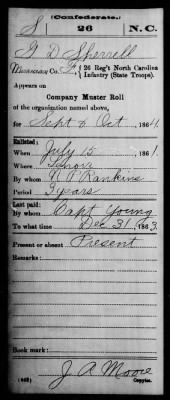 (Confederate.)
S 26 N.C.
G D Sherrell
Co. F, 26 Reg't North Carolina
Infantry (State Troops).
Appears on
Company Muster Roll
of the organization named above,
for Sept & Oct, 1864.
Enlisted:
When July 15, 1861.
Where Lenoir
By whom N P Rankins
Period 3 years
Last paid:
By whom Capt Young
To what time Dec 31, 1863.
Present or absent Present
Remarks:
Book mark:
J A Moore
Copyist.